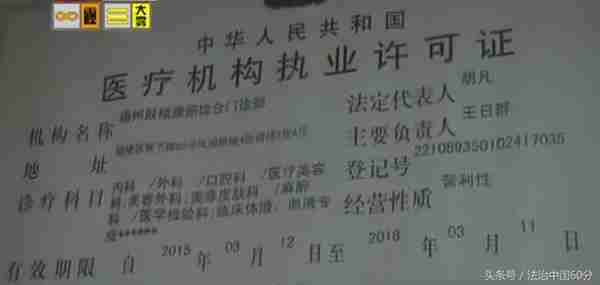 中华人民共和国
医疗机构执业许可证
机构名称 福州 综合门诊部
法定代表人 胡凡
地址
主要负责人 王日群
诊疗科目 内科 /外科 /口腔科 /医疗美容
科;美容外科;美容皮肤科 /麻醉
科 /医学检验科;临床体液、血液专
业******
登记号 221089350102417035
经营性质 营利性
有效期限 自 2015 年 03 月 12 日至 2018 年 03 月 11 日
头条号 / 法治中国60分